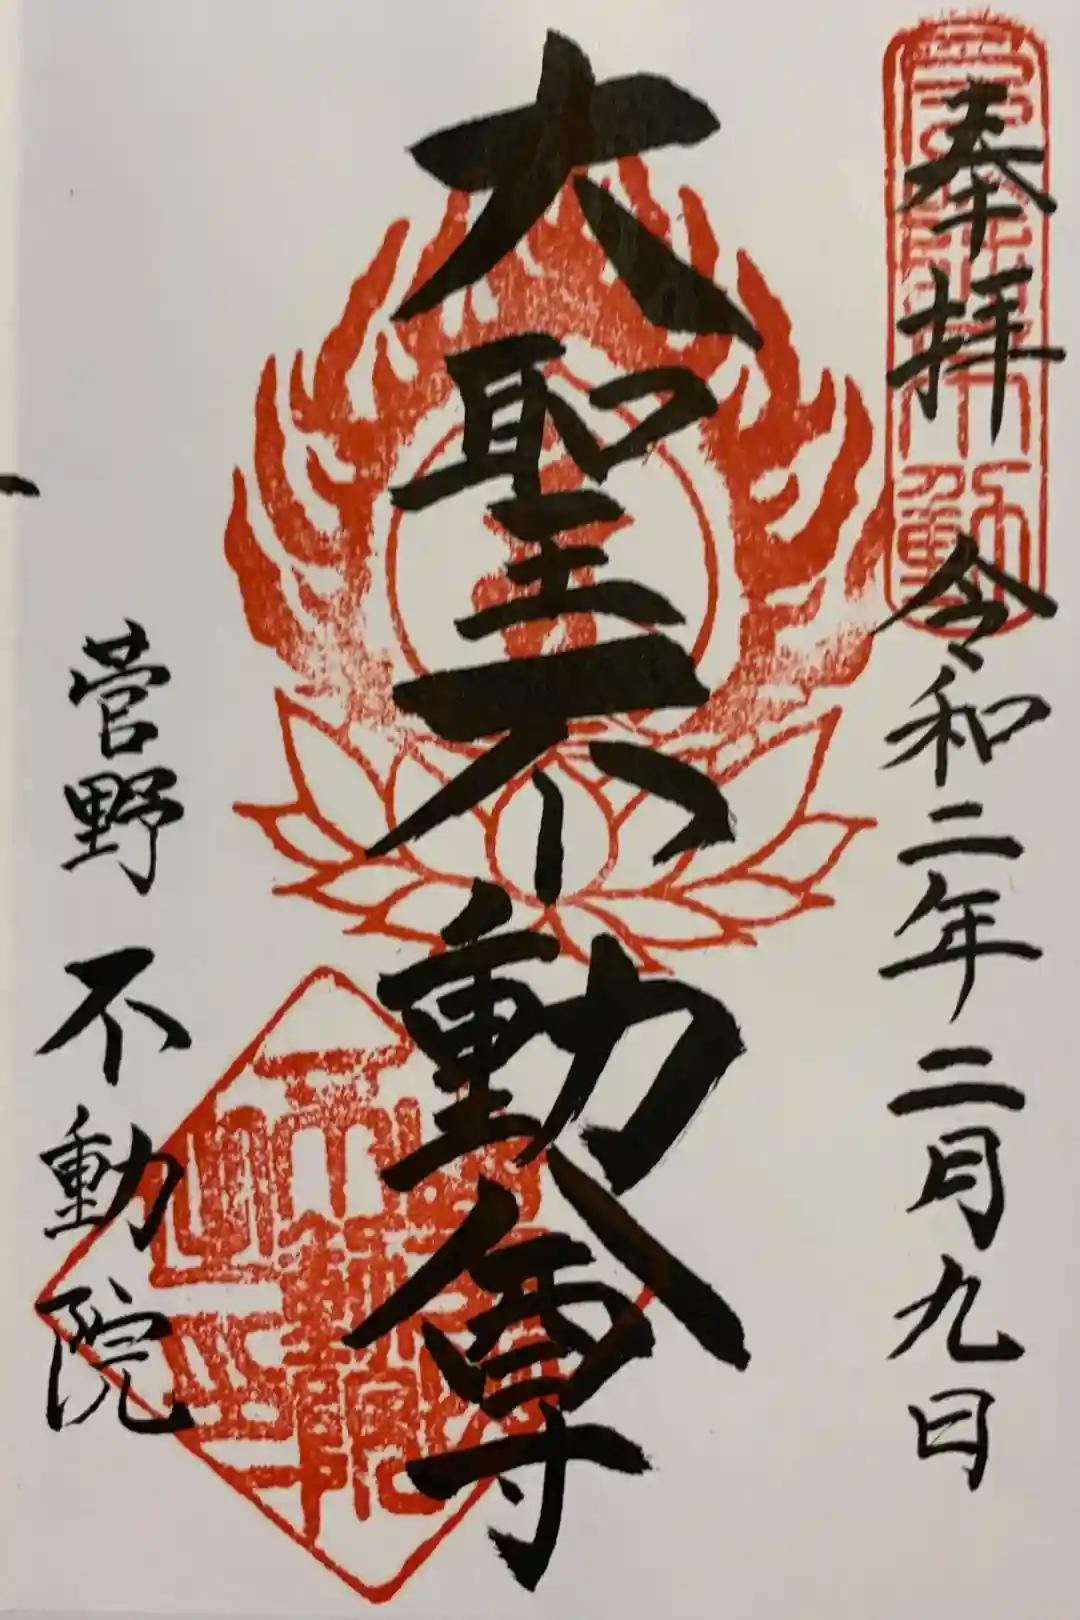 奉拝 令和二年二月九日
大聖不動尊
菅野不動院